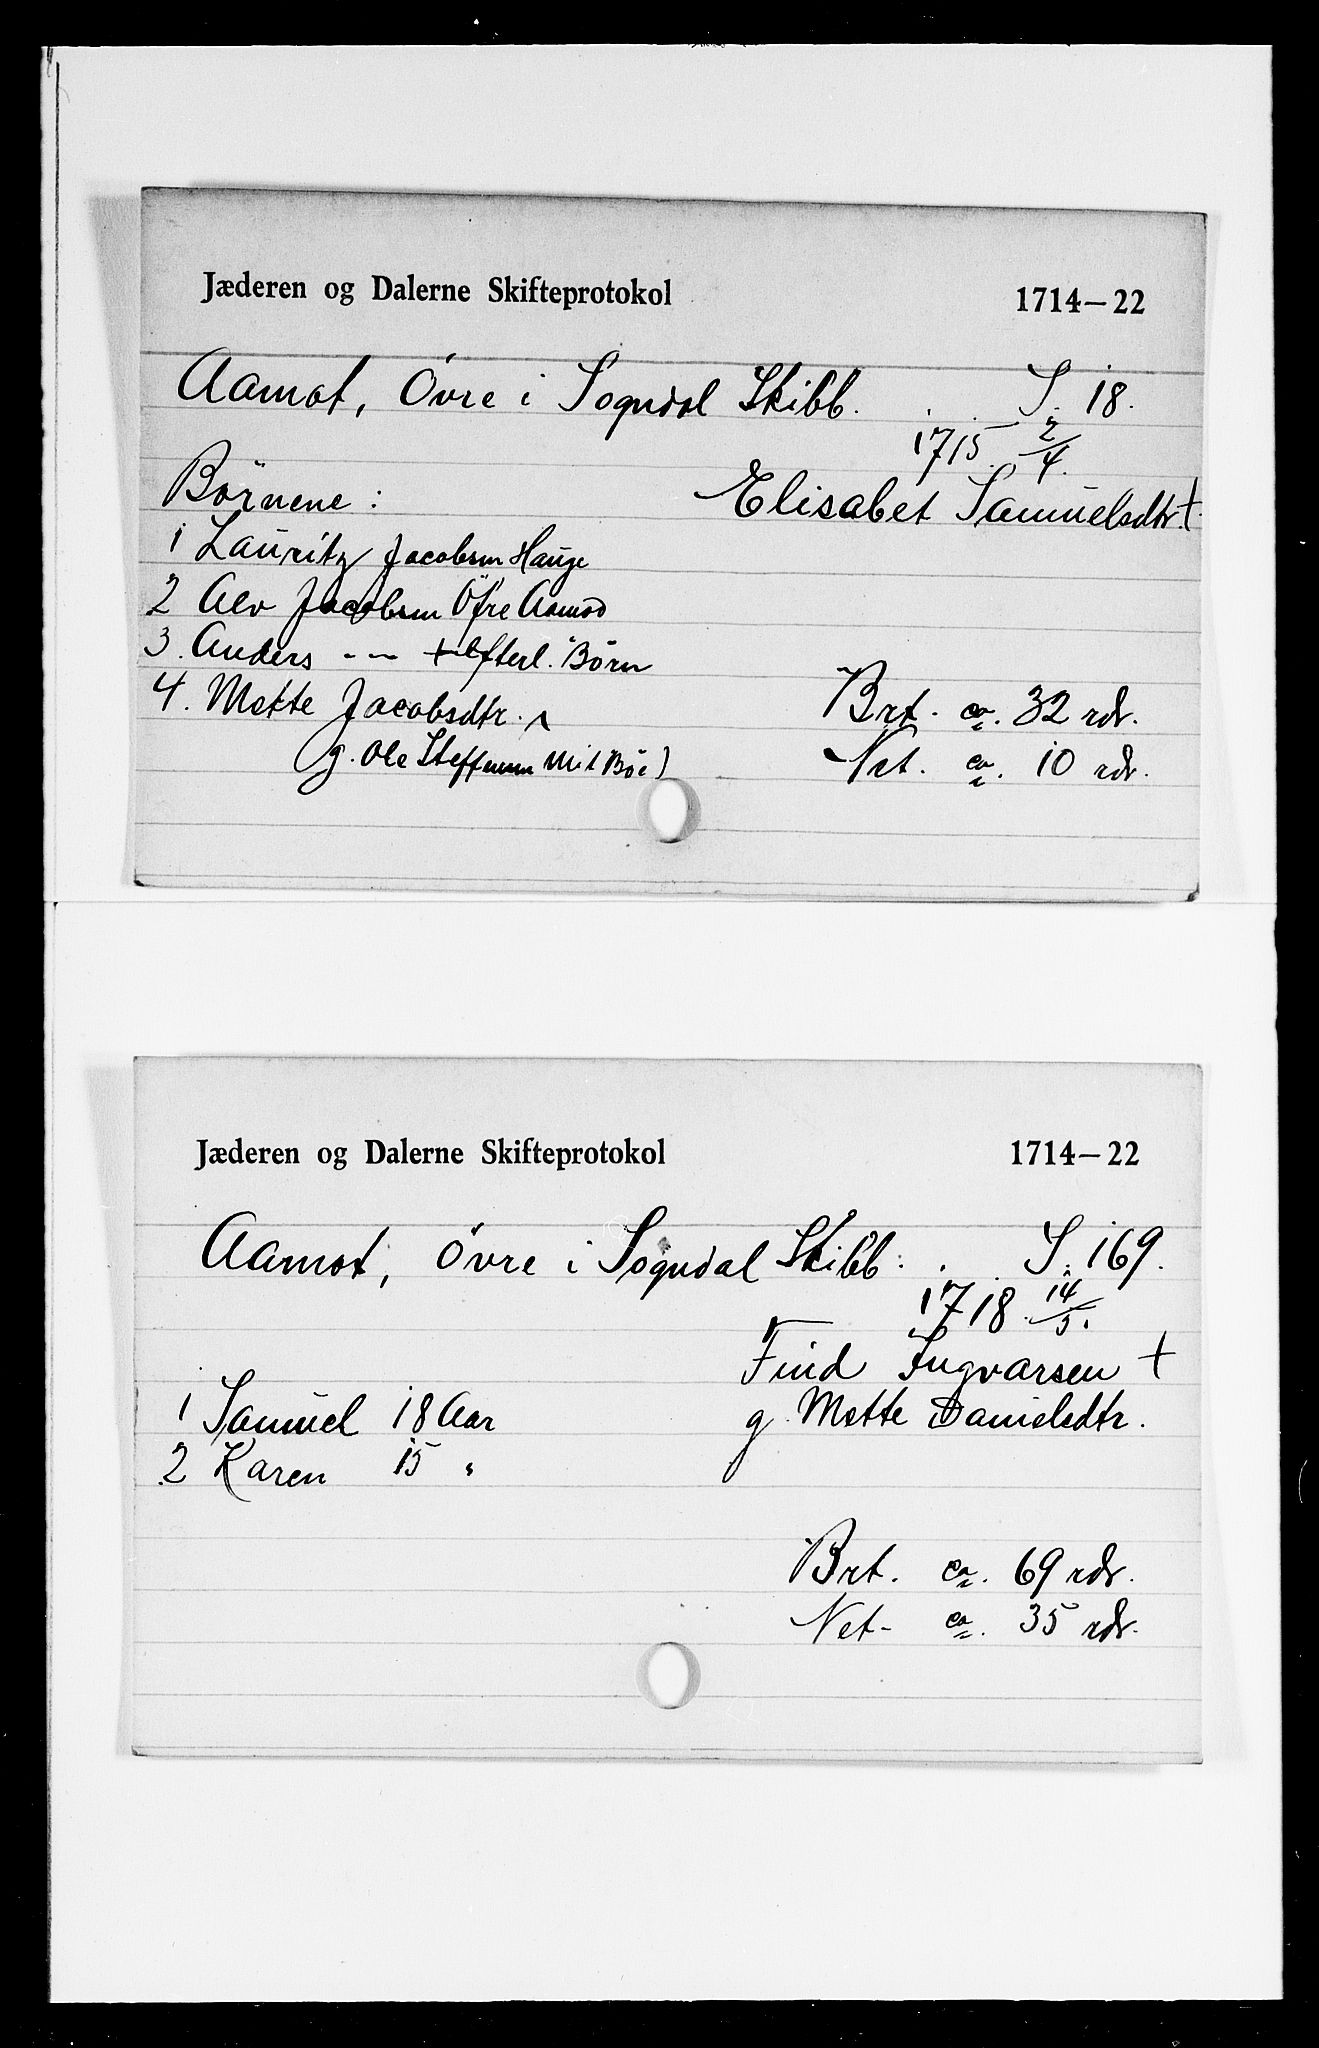 Jæderen og Dalerne Skifteprotokol 1714–22
Aamot, Övre i Sogndal Skibb. . . S. 18.
1715 2/4.
Börnene : Elisabet Samuelsdtr. †
1 Lauritz Jacobsen Hauge
2 Alv Jacobsen Öfre Aamod
3. Anders -- -- † efterl. Börn
4. Mette Jacobsdtr. Brt. ca. 32 rdr.
g. Ole Steffensen Mit Böe) Net. ca. 10 rdr.
Jæderen og Dalerne Skifteprotokol 1714–22
Aamot, övre i Sogndal Skibb: . . S. 169.
1718 14/5.
Find Ingvarsen †
1 Samuel 18 Aar g. Mette Danielsdtr.
2 Karen 15 "
Brt. ca. 69 rdr.
Net- ca. 35 rdr.